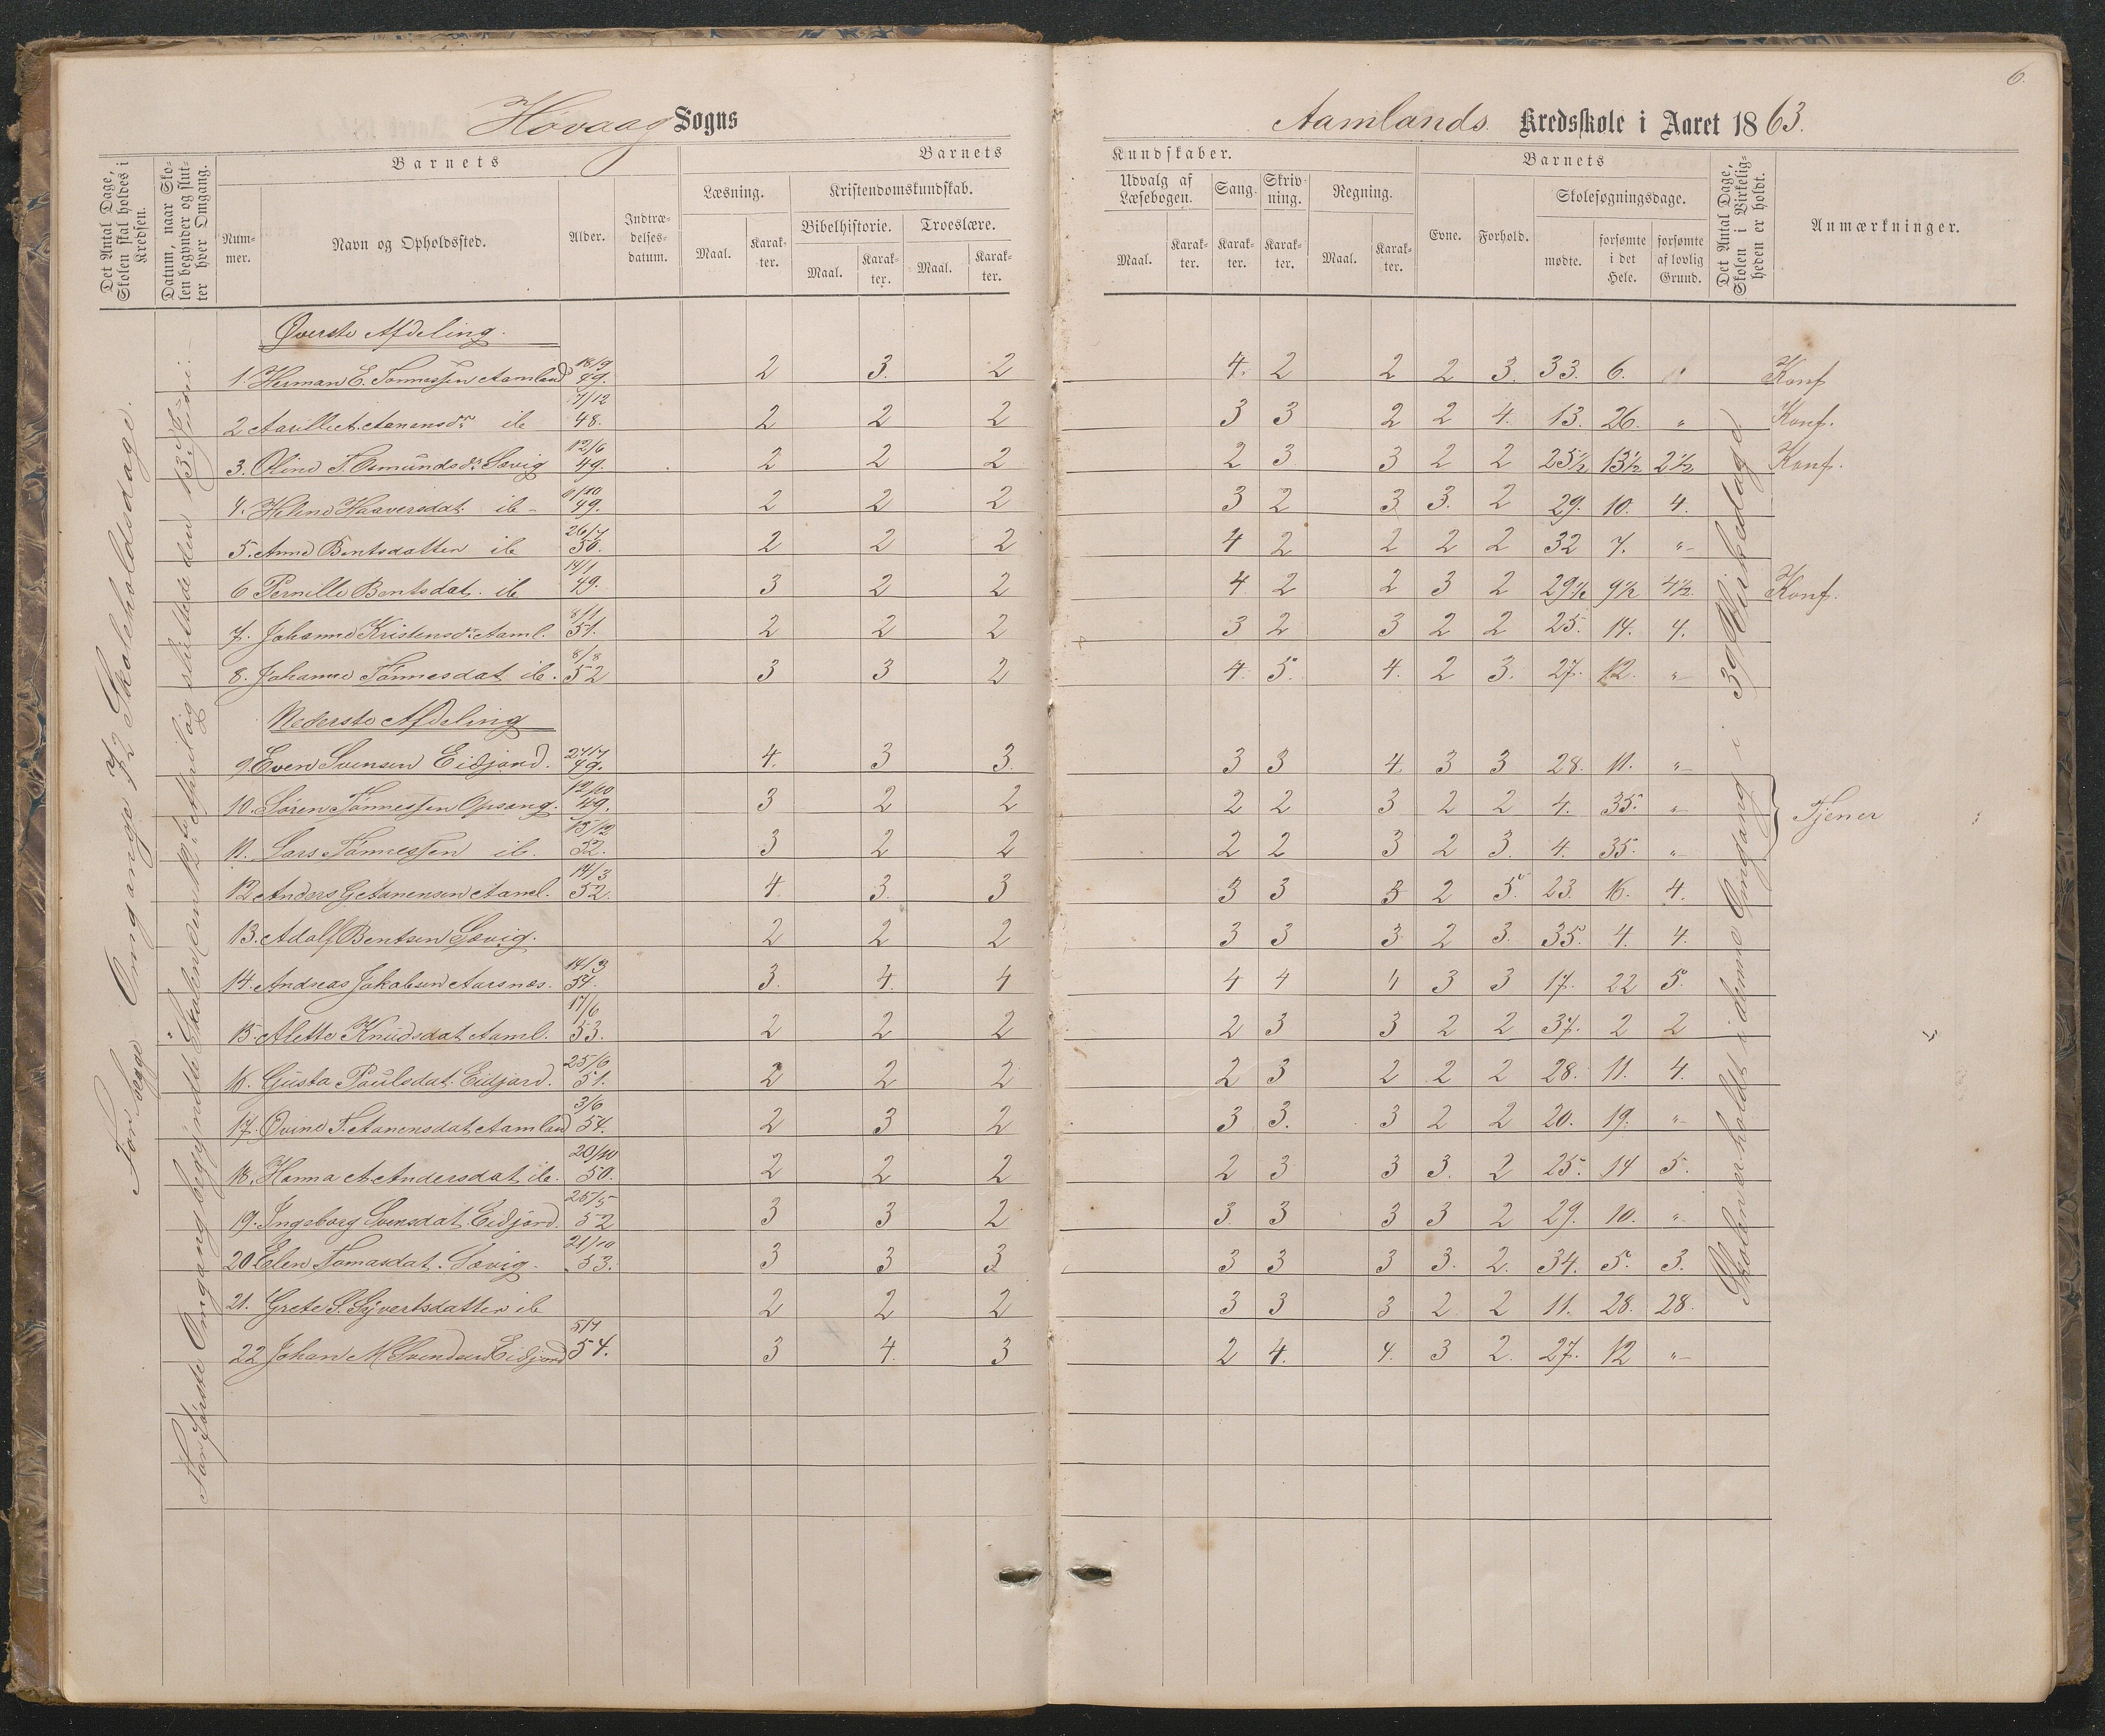 6.
Høvaag Sogns
Aamlands Kredsskole i Aaret 1863.
Det Antal Dage, Skolen skal holdes i Kredsen.
Datum, naar Skolen begynder og slutter hver Omgang.
Barnets
Nummer.
Navn og Opholdssted.
Alder.
Indtrædelsesdatum.
Barnets
Læsning.
Maal.
Karakter.
Kristendomskundskab.
Bibelhistorie.
Maal.
Karakter.
Troeslære.
Maal.
Karakter.
Kundskaber.
Udvalg af Læsebogen.
Maal.
Karakter.
Sang.
Karakter.
Skrivning.
Karakter.
Regning.
Maal.
Karakter.
Barnets
Evne.
Forhold.
Skolesøgningsdage.
mødte.
forsømte i det Hele.
forsømte af lovlig Grund.
Det Antal Dage, Skolen i Virkeligheden er holdt.
Anmærkninger.
Omgange 72 Skoleholdsdage.
Første Omgang begyndte Skolen den April og sluttede den 13de Juni.
Øverste Afdeling.
1. Herman E. Tønnessen Aamland 18/9 49. 2 3. 2 4. 2 2 2 3. 33. 6. " Konf
2 Aanensdr ib 17/12 48. 2 2 2 3 3 2 2 4. 13. 26. " Konf.
3. Oline T. Osmundsdr Søvig 12/6 49. 2 2 2 2 3 3 2 2 25½ 13½ 2½ Konf.
4. Heline Haaversdat. ib 11/10 49. 2 2 2 3 2 3 3. 2 29. 10. 4.
5. Anne Bentsdatter ib 26/7 50. 2 2 2 4 2 2 2 2 32 7. "
6 Pernille Bentsdat. ib 14/1 49. 3 2 2 4 2 2 3 2 29½ 9½ 4½ Konf.
7. Johanne Kristensdr Aaml. 8/1 51. 2 2 2 3 2 3 2 2 25. 14. 4.
8. Johanne Tønnesdat ib. 8/8 52 3 3 2 4. 5. 4. 2 3. 27. 12. "
Nederste Afdeling
9. Even Svensen Eidjord. 27/7 49. 4. 3 3. 3 3 4. 3 3 28. 11. "
10. Søren Tønnessen Opsang. 12/10 49. 3 2 2 2 2 3 2 2 4. 35. "
Tjener
11. Lars Tønnessen ib. 15/12 52. 3 2 2 2 2 3 2 3. 4. 35. "
12 Anders G Aanensen Aaml. 14/3 52. 4. 3. 3 3 3 3 2 5. 23. 16. 4.
13. Adolf Bentsen Søvig. 2 2 2 3 3 3 2 3. 35. 4. 4.
14. Andreas Jakobsen Aarsnæs. 14/3 51. 3. 4. 4 4 4 4 3 3 17. 22 5.
15. Alette Knudsdat Aaml. 17/6 53. 2 2 2 2 3 3 2 2 37. 2 2
16. Gusta Paulsdat. Eidjord. 25/6 51. 2 2 2 2 3 2 2 2 28. 11. 4.
17. Ovine T. Aanensdat Aamland 3/6 54. 2 3 2 3 3. 3 2 2 20. 19. "
18. Hanna A. Andersdat ib. 20/10 50. 2 2 2 2 3 3 3. 2 25. 14 5.
19. Ingeborg Svensdat Eidjord. 25/5 52 3 3 2 3. 3 3 3 2 29. 10. "
20 Elen Tomasdat. Søvig. 21/10 53. 3 3 3 3 3 3 3. 2. 34. 5. 3.
21. Grete S. Syvertsdatter ib 2 2 2 3 3 3 2 2 11. 28. 28.
22 Johan M Svendsen Eidjord 5/7 54. 3 4. 3 2 4. 4. 3 2. 27. 12 "
Skolen er holdt i denne Omgang i 39 Virkedage